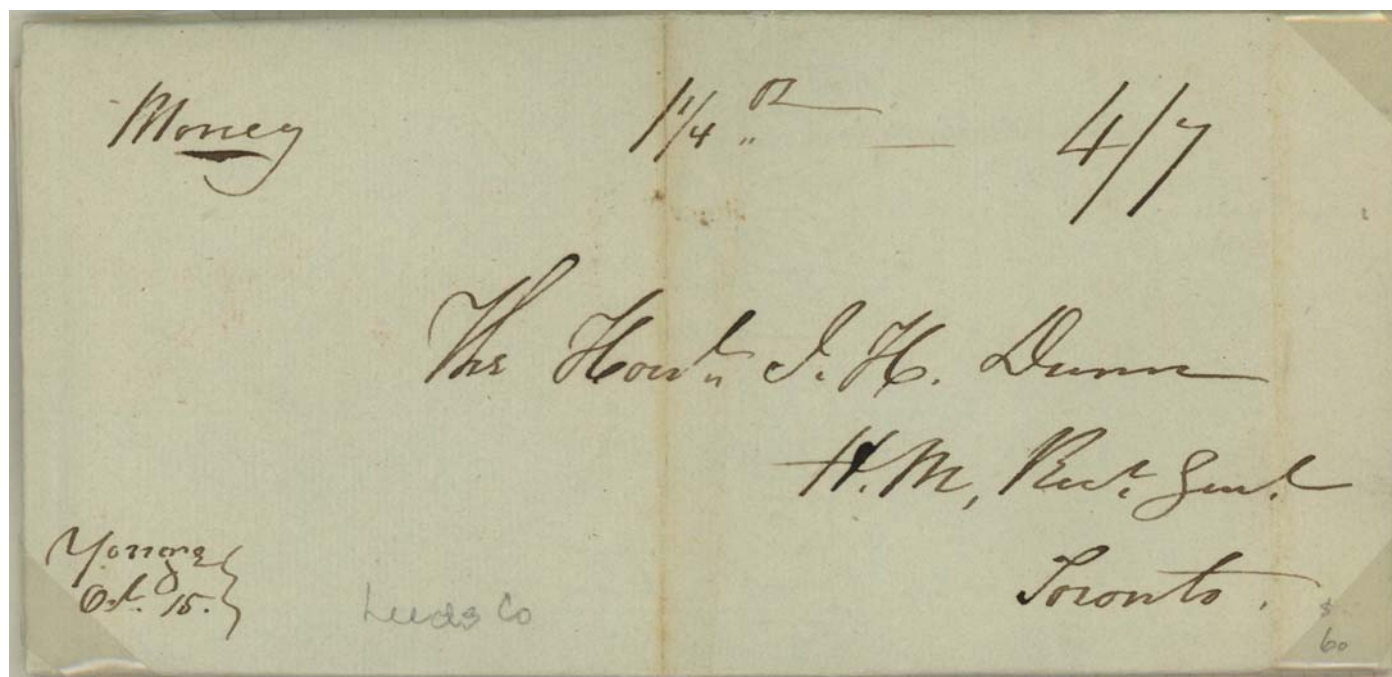 Money 1 1/4 oz 4/7
The Honbl. J. H. Dunn
H. M, Recr. Genl.
Toronto.
Yonge
Oct. 15.
Leeds Co
$
60